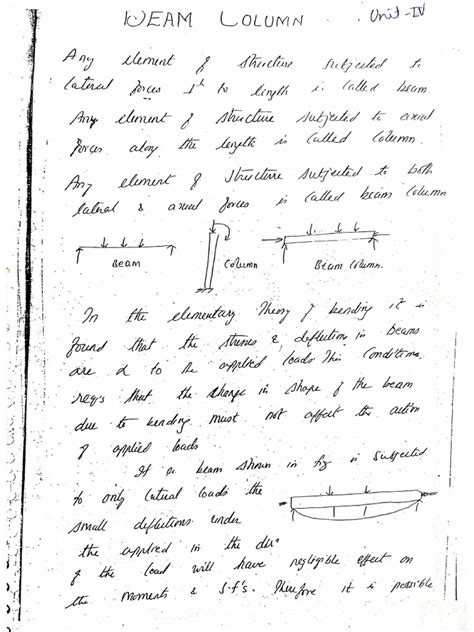 BEAM COLUMN Unit-IV
Any element of structure subjected to
lateral forces ⊥r to length is called beam
Any element of structure subjected to axial
forces along the length is called column.
Any element of structure subjected to both
lateral & axial forces is called beam column
Beam Column Beam Column.
In the elementary theory of bending it is
found that the stresses & deflection in beams
are α to the applied loads This condition
req's that the change in shape of the beam
due to bending must not affect the action
of applied loads
If a beam shown in fig is subjected
to only lateral loads the
small deflections under
the applied in the
of the load will have negligible effect on
the moments & S.F's. Therefore it is possible